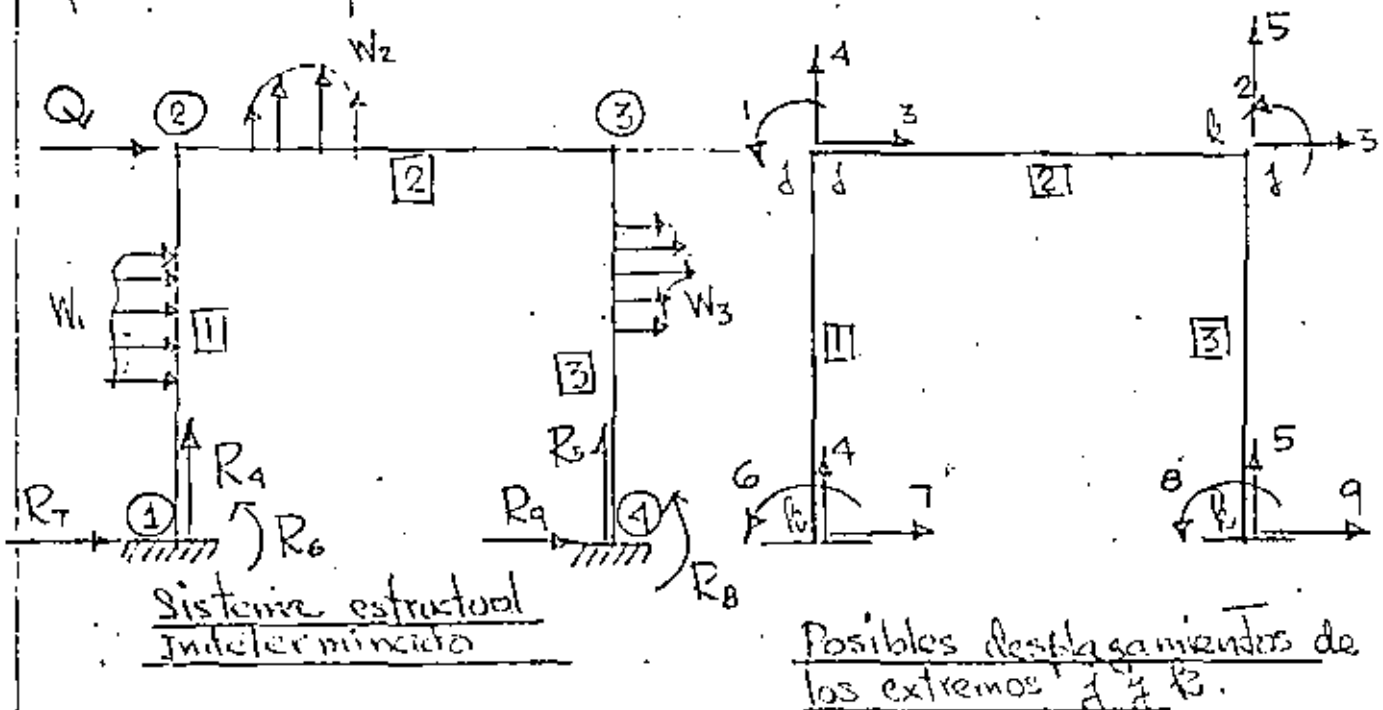 W₂
Q
②
③
2
W₁
1
3
W₃
R₄
R₇
①
R₆
R₅
R₉
④
R₈
Sistema estructural
Indeterminado
4
1
3
j
j
2
5
2
k
3
j
1
3
6
4
k
7
8
5
k
9
Posibles desplazamientos de
los extremos j y k.